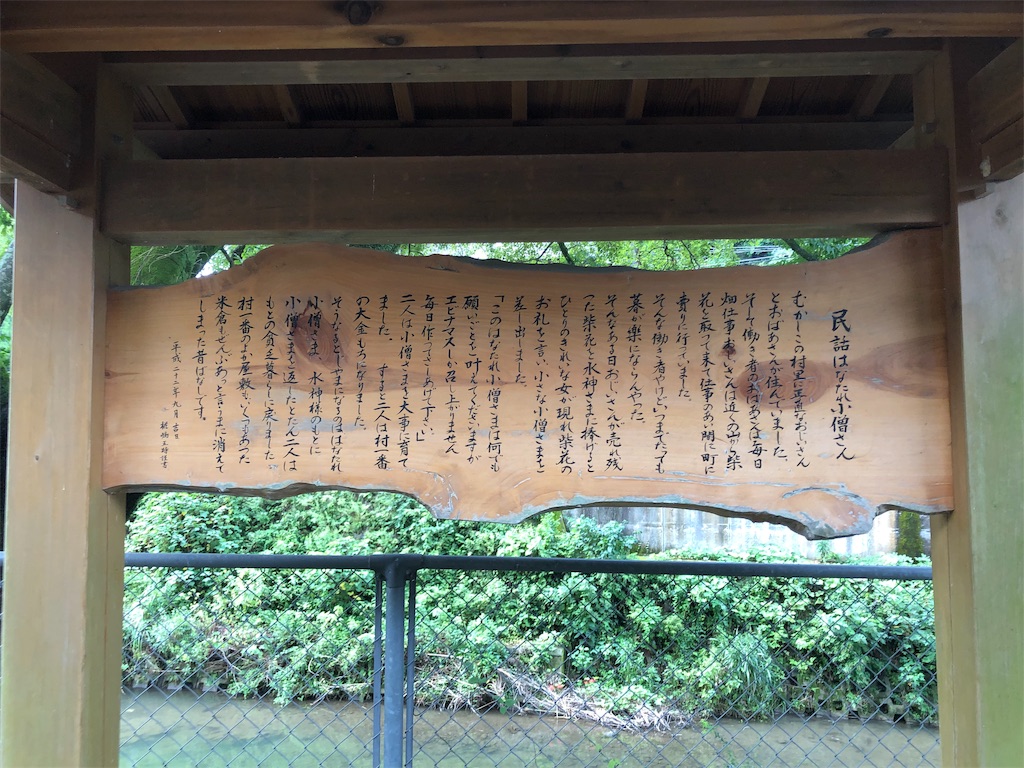 民話はなたれ小僧さん
むかしこの村に正直なおじいさん
とおばあさんが住んでいました。
そして働き者のおばあさんは毎日
畑仕事おじいさんは近くの山から柴
花を取って来て仕事の あい間に町に
売りに行っていました。
そんな働き者やけどいつまでたっても
暮が楽にならんやった。
そんなある日おじいさんが売れ残
った柴花を水神さまに捧げると
ひとりのきれいな女が現れ柴花の
お礼を言い、小さな小僧さまを
差し出しました。
「このはなたれ小僧さまは何でも
願いごとを叶えてくださいますが
エビナマスしか召し上がりません
毎日作ってさしあげて下さい。」
二人は小僧さまを大事に育て
ました。 すると二人は村一番
の大金もちになりました。
そうなるとじゃまになるのははなたれ
小僧さま、水神様のもとに
小僧さまを返したとたん二人は
もとの貧乏暮らしに戻りました
村一番のよか屋敷も、いくつもあった
米倉もぜんぶあっと言うまに消えて
しまった昔ばなしです。
平成二十二年九月吉日